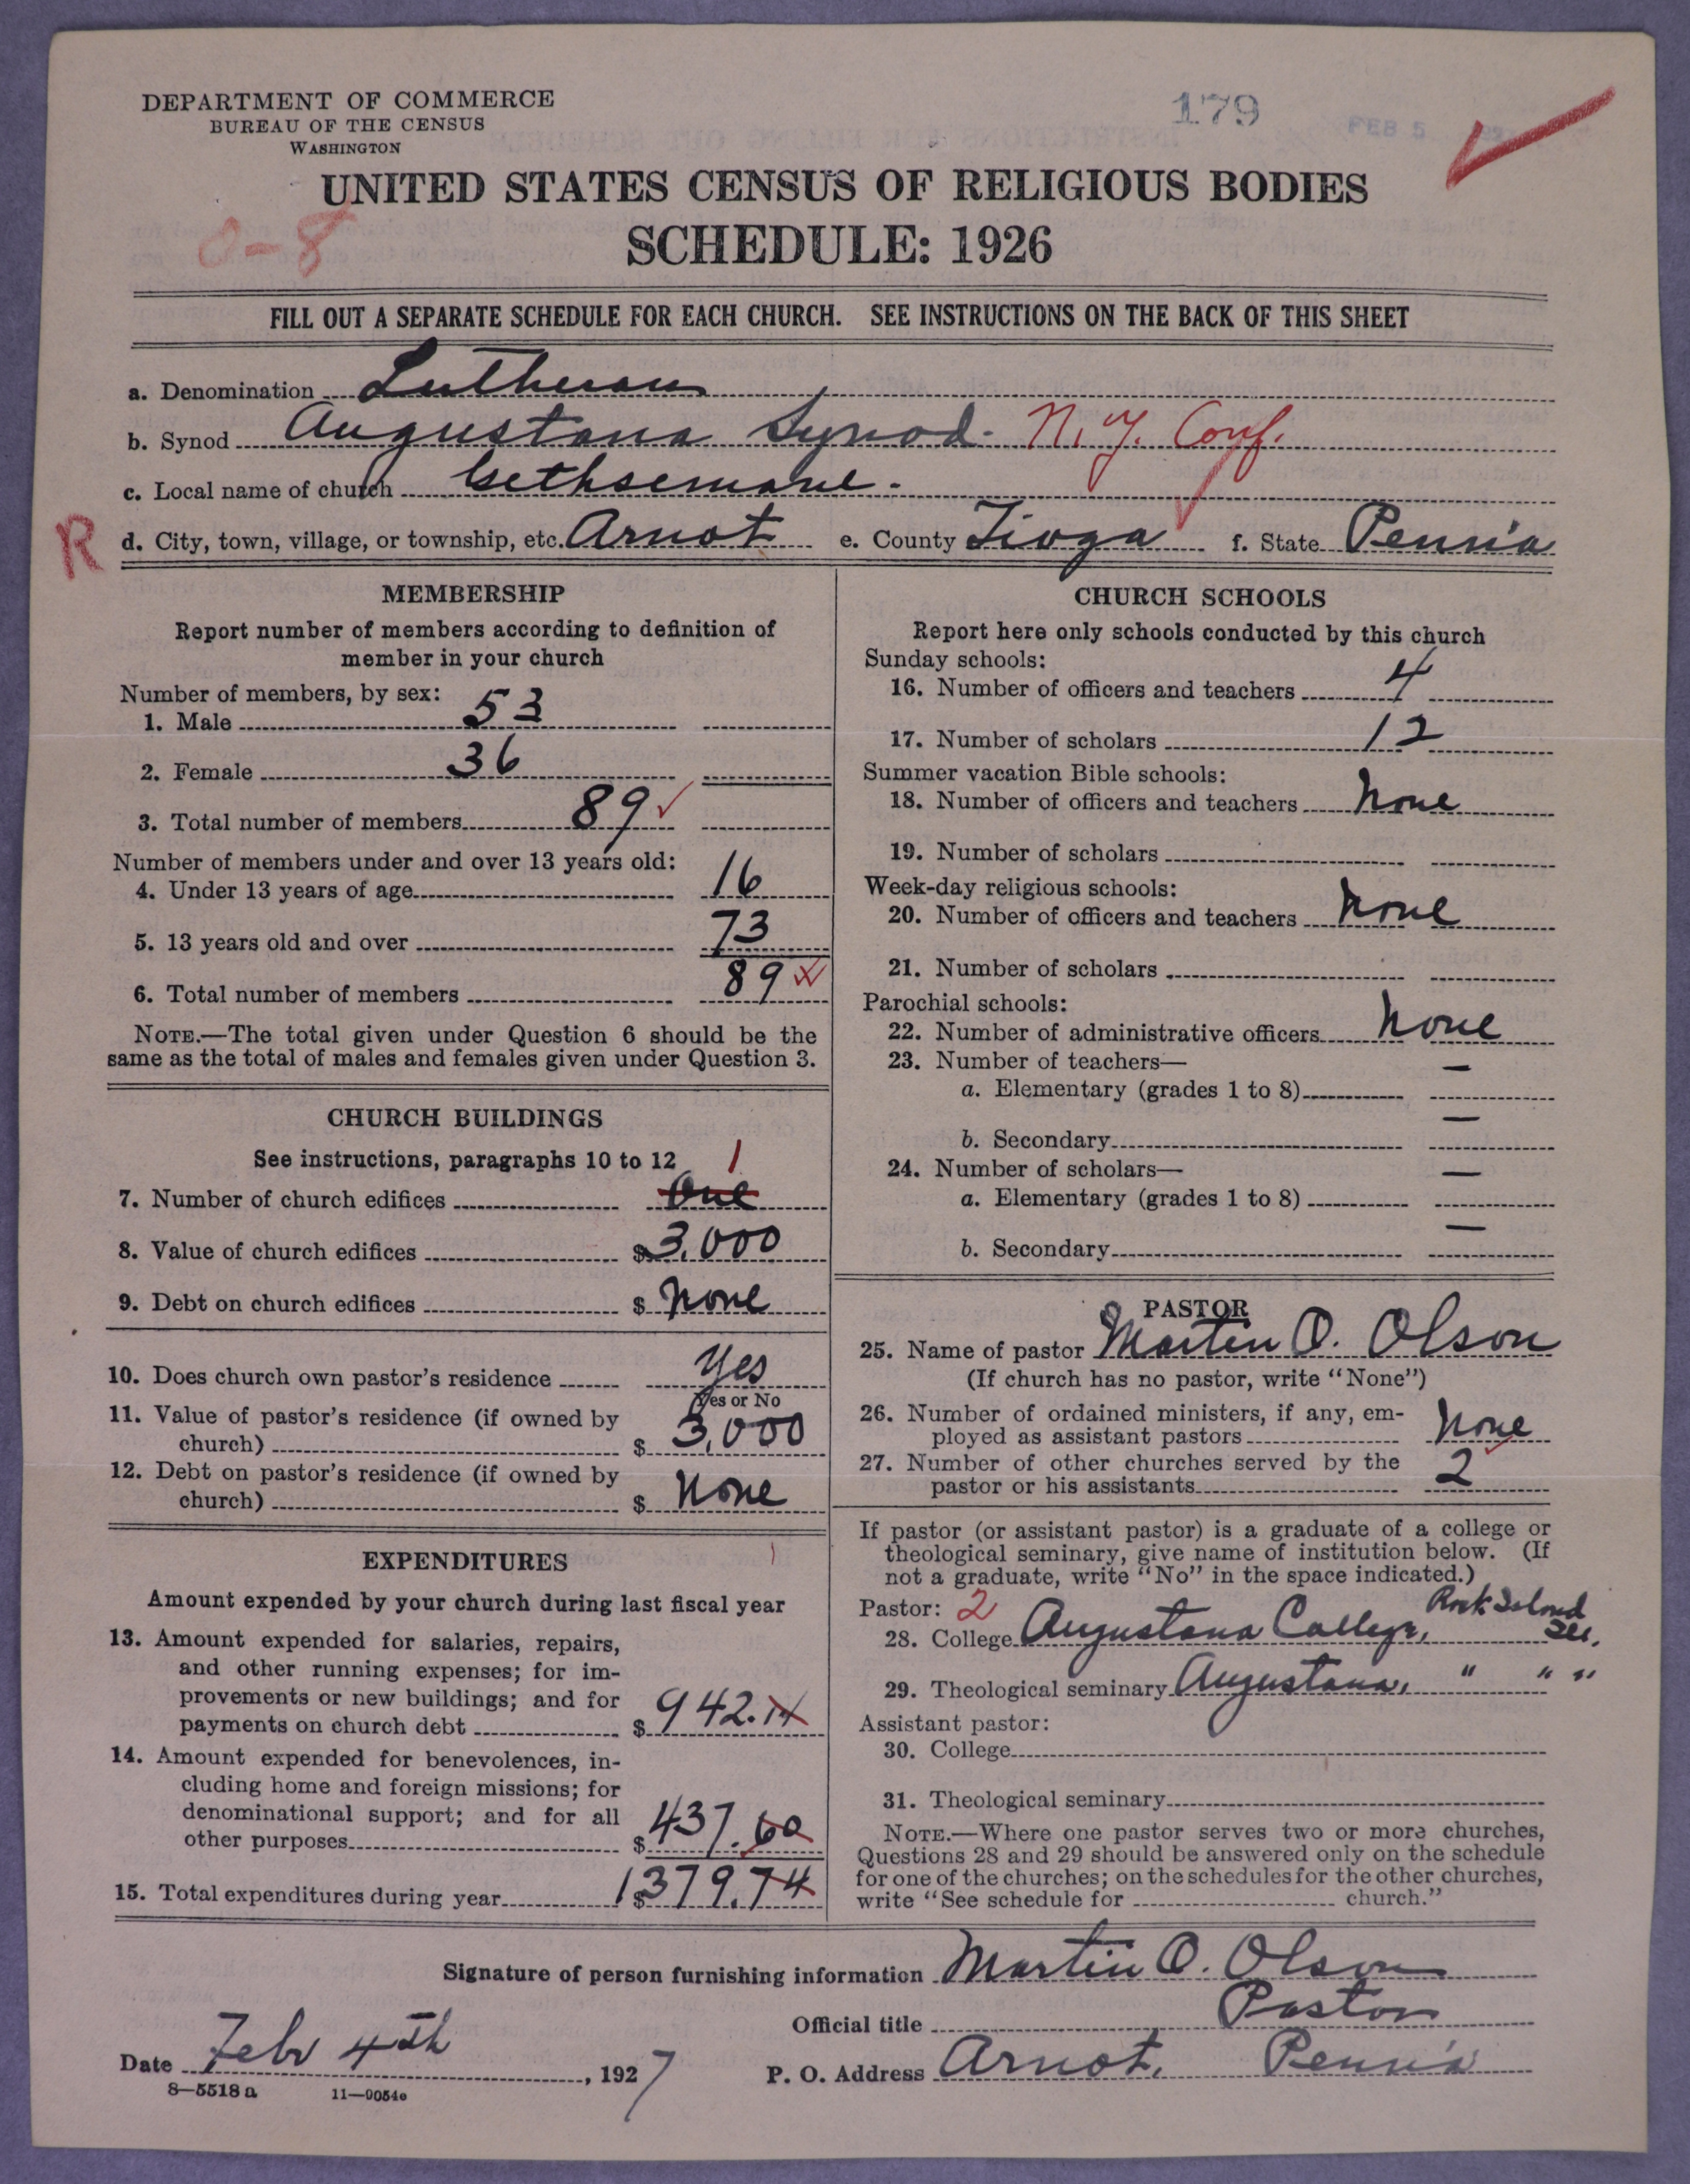 DEPARTMENT OF COMMERCE
BUREAU OF THE CENSUS
WASHINGTON
179
FEB 5
UNITED STATES CENSUS OF RELIGIOUS BODIES
0-8
SCHEDULE: 1926
FILL OUT A SEPARATE SCHEDULE FOR EACH CHURCH. SEE INSTRUCTIONS ON THE BACK OF THIS SHEET
a. Denomination Lutheran
b. Synod Augustana Synod. N.Y. Conf.
c. Local name of church Gethsemane.
R d. City, town, village, or township, etc. Arnot e. County Tioga f. State Penn'a
MEMBERSHIP
Report number of members according to definition of
member in your church
Number of members, by sex:
1. Male 53
2. Female 36
3. Total number of members 89
Number of members under and over 13 years old:
4. Under 13 years of age 16
5. 13 years old and over 73
6. Total number of members 89
NOTE.—The total given under Question 6 should be the
same as the total of males and females given under Question 3.
CHURCH BUILDINGS
See instructions, paragraphs 10 to 12
1
7. Number of church edifices One
8. Value of church edifices $3,000
9. Debt on church edifices $ None
10. Does church own pastor's residence Yes
Yes or No
11. Value of pastor's residence (if owned by
church) $ 3,000
12. Debt on pastor's residence (if owned by
church) $ None
EXPENDITURES
Amount expended by your church during last fiscal year
13. Amount expended for salaries, repairs,
and other running expenses; for im-
provements or new buildings; and for
payments on church debt $ 942.14
14. Amount expended for benevolences, in-
cluding home and foreign missions; for
denominational support; and for all
other purposes $ 437.60
15. Total expenditures during year $ 1379.74
CHURCH SCHOOLS
Report here only schools conducted by this church
Sunday schools:
16. Number of officers and teachers 4
17. Number of scholars 12
Summer vacation Bible schools:
18. Number of officers and teachers None
19. Number of scholars
Week-day religious schools:
20. Number of officers and teachers None
21. Number of scholars
Parochial schools:
22. Number of administrative officers None
23. Number of teachers— —
a. Elementary (grades 1 to 8)
—
b. Secondary
24. Number of scholars— —
a. Elementary (grades 1 to 8)
—
b. Secondary
PASTOR
25. Name of pastor Martin O. Olson
(If church has no pastor, write "None")
26. Number of ordained ministers, if any, em-
ployed as assistant pastors None
27. Number of other churches served by the
pastor or his assistants 2
If pastor (or assistant pastor) is a graduate of a college or
theological seminary, give name of institution below. (If
not a graduate, write "No" in the space indicated.)
Pastor: 2
28. College Augustana College, Rock Island Ill.
29. Theological seminary Augustana, " " "
Assistant pastor:
30. College
31. Theological seminary
NOTE.—Where one pastor serves two or more churches,
Questions 28 and 29 should be answered only on the schedule
for one of the churches; on the schedules for the other churches,
write "See schedule for church."
Signature of person furnishing information Martin O. Olson
Official title Pastor
Date Febr 4th, 1927
P. O. Address Arnot, Penn'a
8—5518 a 11—9054e